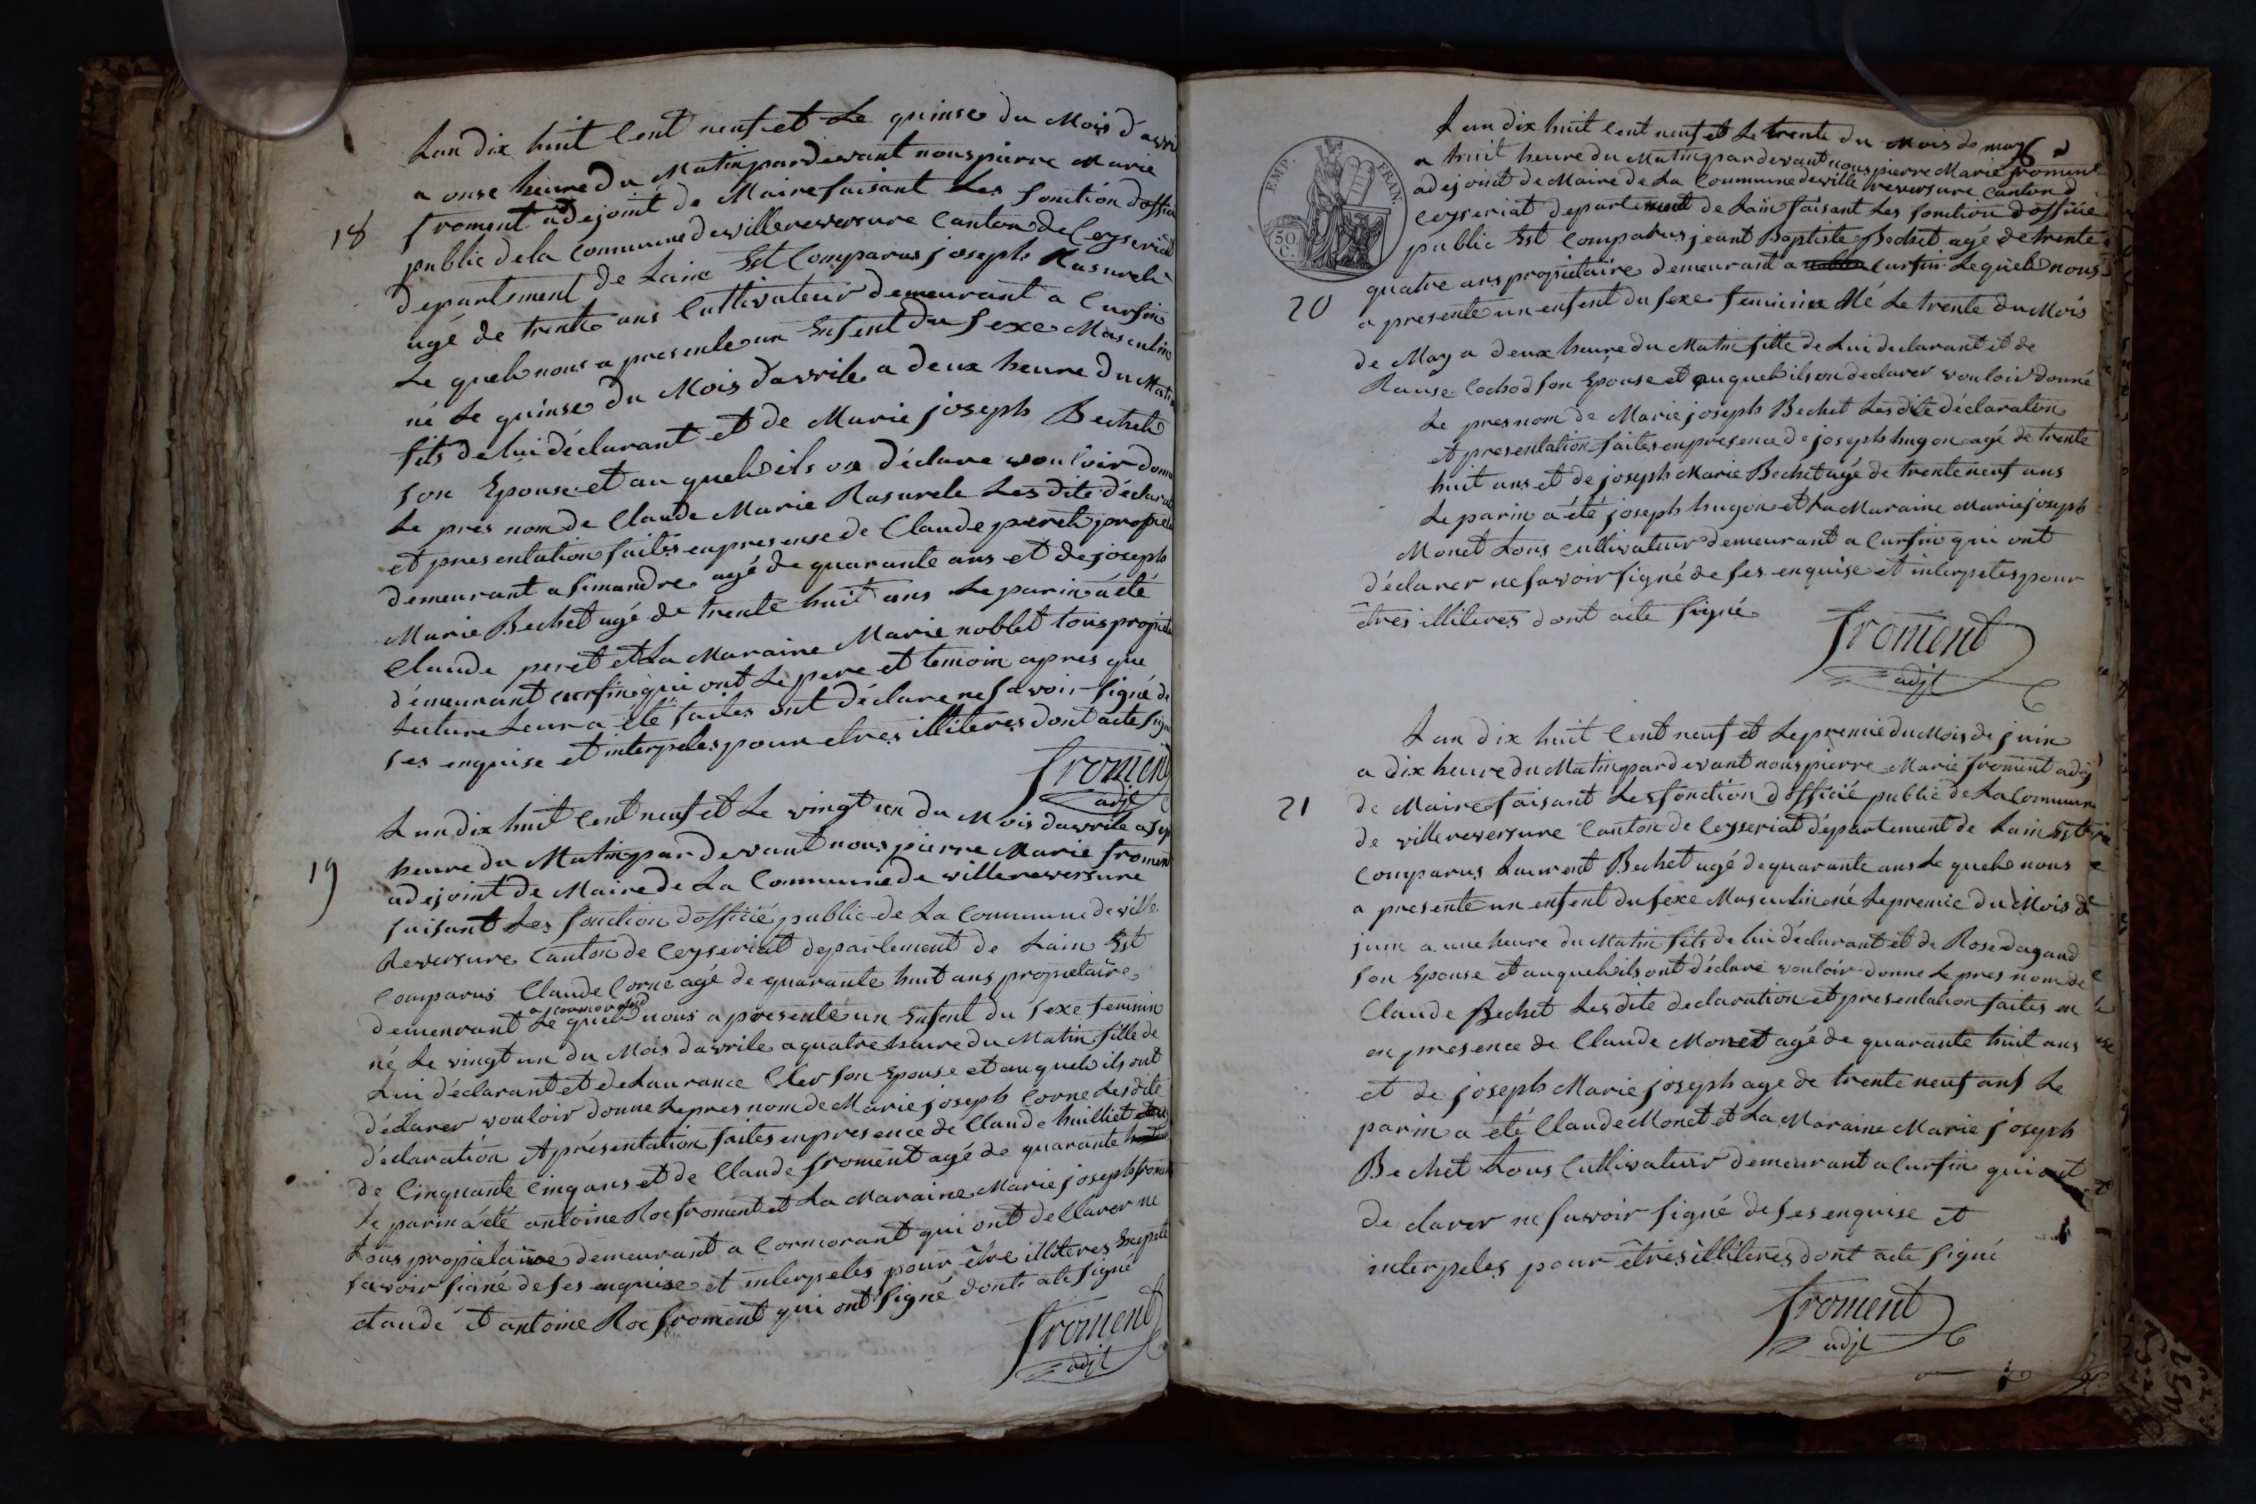 Lan dix huit Cent neuf et Le quinse du Mois davri
a onse heure du Matin pardevant nous pierre Marie
18
froment adejoint de Maire faisant Les fonction doffici
public de la Commune de villereversure Canton de Ceyseriat
departement de Laine Est Comparus joseph Rasurel
agé de trente ans Cultivateur demeurant a Cursin
Le quel nous a presente un Enfent du sexe Masculin
né Le quinse du Mois davrile a deux heure du Matin
fils de lui déclarant et de Marie joseph Bechet
son Epouse et au quel ils on déclare vouloir donne
Le pres nom de Claude Marie Rasurele Les dite déclarat
et presentation faites en presense de Claude peret propieta
demeurant a simandre agé de quarante ans et de joseph
Marie Bechet agé de trente huit ans Le parin a été
Claude peret et La Maraine Marie noblet tous propieta
démeurant cursin qui ont Le pere et temoin apres que
Lecture Leur a été faites ont déclare ne savoir signé de
ses enquise et interpeles pour etres illiteres dont acte signé
froment
adjt
Lan dix huit Cent neuf et Le vingt un du Mois davrile a sep
heure du Matin pardevant nous pierre Marie froment
19
adejoint de Maire de La Commune de villereversure
faisant Les fonction dofficié public de La Commune de ville
Reversure Canton de Ceyseriat departement de Lain Est
Comparus Claude Corne agé de quarante huit ans propietaire
a cormorand
demeurant Le quel nous a présenté un Enfent du sexe feminin
né Le vingt un du Mois davrile a quatre heure du Matin fille de
Lui déclarant et de Laurance Cler son Epouse et au quel ils ont
déclarer vouloir donne Le pres nom de Marie joseph Corne Les dite
déclaration et présentation faites en presence de Claude huilliet
de Cinquante Cinq ans et de Claude froment agé de quarante
Le parin a été antoine Roc froment et La Maraine Marie joseph froment
tous propietaire demeurant a Cormorant qui ont de Clarer ne
savoir signé de ses enquise et interpeles pour être illiteres Excepte
Claude et antoine Roc froment qui ont signé dont acte signé
froment
adjt
EMP. FRAN.
50 C.
Lan dix huit Cent neuf et Le trente du Mois de may
a huit heure du Matin pardevant nous pierre Marie froment
adejoint de Maire de La Commune de ville reversure Canton d
Ceyseriat departement de Lain faisant Les fonction dofficié
public Est Comparus jeant Baptiste Bechet agé de trente
quatre ans propietaire demeurant a Cursin Le quel nous
20
a presente un enfent du sexe feminin Né Le trente du Mois
de May a deux heure du Matin fille de Lui declarant et de
Rause Cochod son Epouse et au quel ils on declarer vouloir donné
Le pres nom de Marie joseph Bechet Les dite déclaration
et presentation faites en presence de joseph hugon agé de trente
huit ans et de joseph Marie Bechet agé de trente neuf ans
Le parin a été joseph hugon et La Maraine Marie joseph
Monet tous cultivateur demeurant a Cursin qui ont
déclarer ne savoir signé de ses enquise et interpeles pour
êtres illiteres dont acte signé
froment
adjt
Lan dix huit Cent neuf et Le premie du Mois de juin
a dix heure du Matin pardevant nous pierre Marie froment adj
21
de Maire faisant Les fonction dofficié public de La Commune
de villereversure Canton de Ceyseriat département de Lain Est
Comparus Laurent Bechet agé de quarante ans Le quel nous
a presente un enfent du sexe Masculin né Le premie du Mois de
juin a une heure du Matin fils de lui déclarant et de Rose dagand
son Epouse et au quel ils ont déclaré vouloir donne Le pres nom de
Claude Bechet Les dite declaration et presentation faites en
en presence de Claude Monet agé de quarante huit ans
et de joseph Marie joseph age de trente neuf ans Le
parin a été Claude Monet et La Maraine Marie joseph
Bechet tous Cultivateur demeurant a Cursin qui ont
de clarer ne savoir signé de ses enquise et
interpeles pour êtres illiteres dont acte signé
froment
adjt